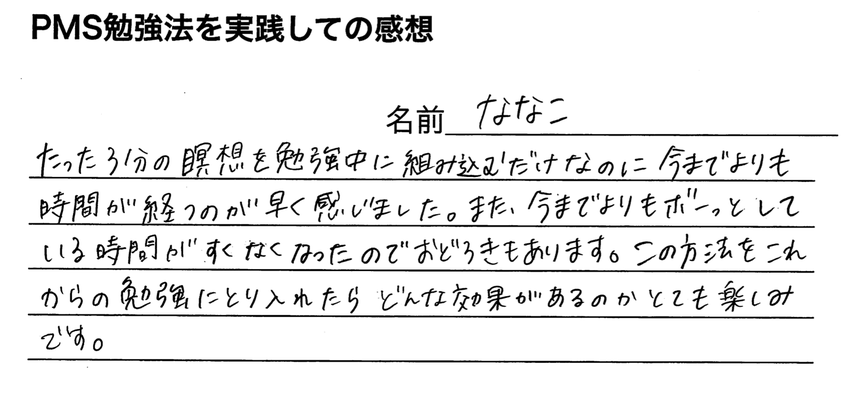 PMS勉強法を実践しての感想
名前 ななこ
たった31分の瞑想を勉強中に組み込むだけなのに今までよりも
時間が経つのが早く感じました。また、今までよりもボーっとして
いる時間がすくなくなったのでおどろきもあります。この方法をこれ
からの勉強にとり入れたらどんな効果があるのかとても楽しみ
です。